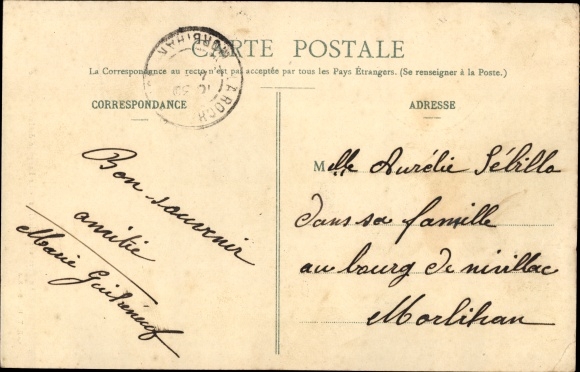 CARTE POSTALE
La Correspondance au recto n'est pas acceptée par tous les Pays Étrangers. (Se renseigner à la Poste.)
CORRESPONDANCE
Bon souvenir
amitié
Marie
ADRESSE
Melle Aurélie Sébillo
dans sa famille
au bourg de nivillac
Morbihan
MORBIHAN